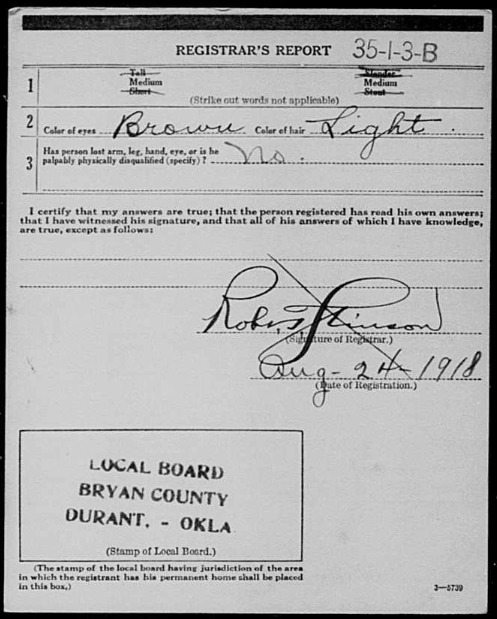 REGISTRAR'S REPORT 35-1-3-B
1 Tall Slender
Medium Medium
Short Stout
(Strike out words not applicable)
2 Color of eyes Brown Color of hair Light
3 Has person lost arm, leg, hand, eye, or is he
palpably physically disqualified (specify)? No.
I certify that my answers are true; that the person registered has read his own answers;
that I have witnessed his signature, and that all of his answers of which I have knowledge,
are true, except as follows:
Stinson
(Signature of Registrar.)
Aug-24-1918
(Date of Registration.)
LOCAL BOARD
BRYAN COUNTY
DURANT, - OKLA
(Stamp of Local Board.)
(The stamp of the local board having jurisdiction of the area
in which the registrant has his permanent home shall be placed
in this box.)
3—5739